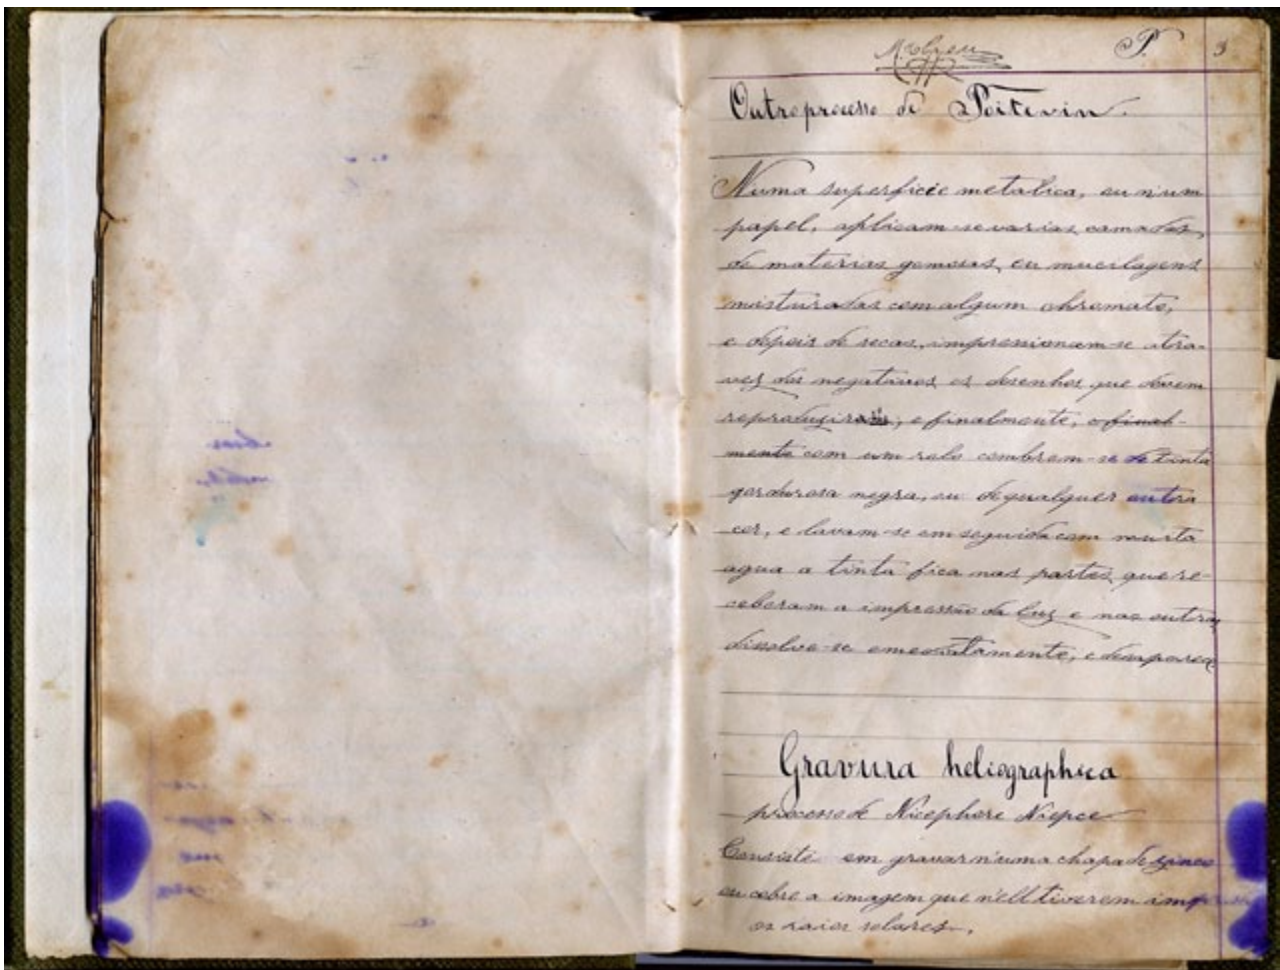 P. 3
Outro processo de Poitevin.
Numa superficie metalica, ou n'um
papel, aplicam-se varias camadas,
de materias gomosas, ou mucilagens
misturadas com algum chromato,
e depois de secas, impressionam-se atra-
vez dos negativos os desenhos que devem
reproduzir, e finalmente, e final-
mente com um rolo combrem-se de tinta
gordurosa negra, ou de qualquer outra
cor, e lavam-se em seguida com muita
agua a tinta fica nas partes que re-
ceberam a impressão da luz e nas outras
dissolve-se emediatamente, e desaparece
Gravura heliographica
processo de Nicephore Niepce
Consiste em gravar n'uma chapa de zinco
ou cobre a imagem que n'ell tiverem
os raios solares.